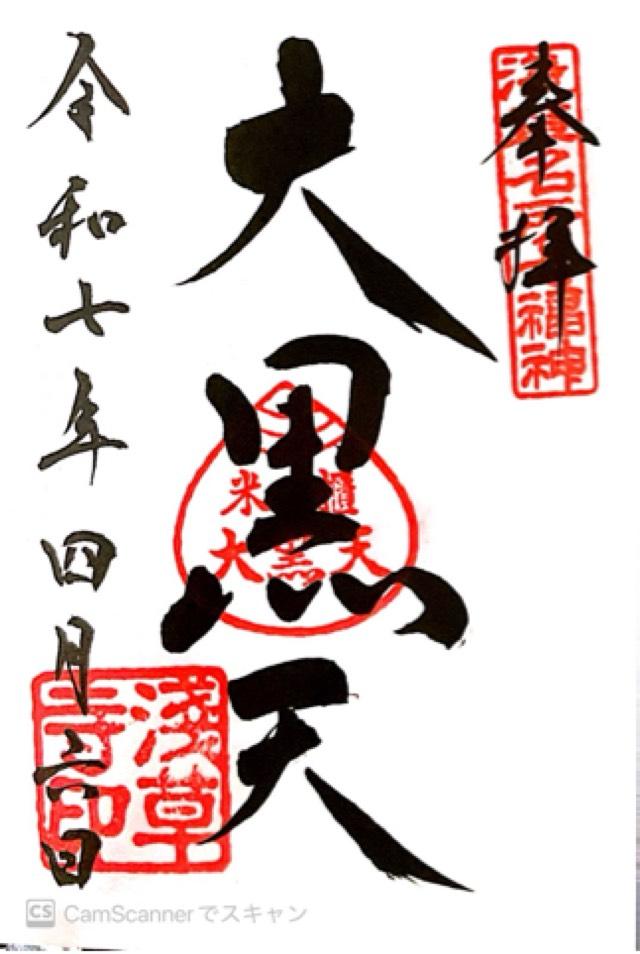 奉拝
浅草名所七福神
大黒天
米櫃
大黒天
令和七年四月六日
浅草
寺印
CS CamScannerでスキャン